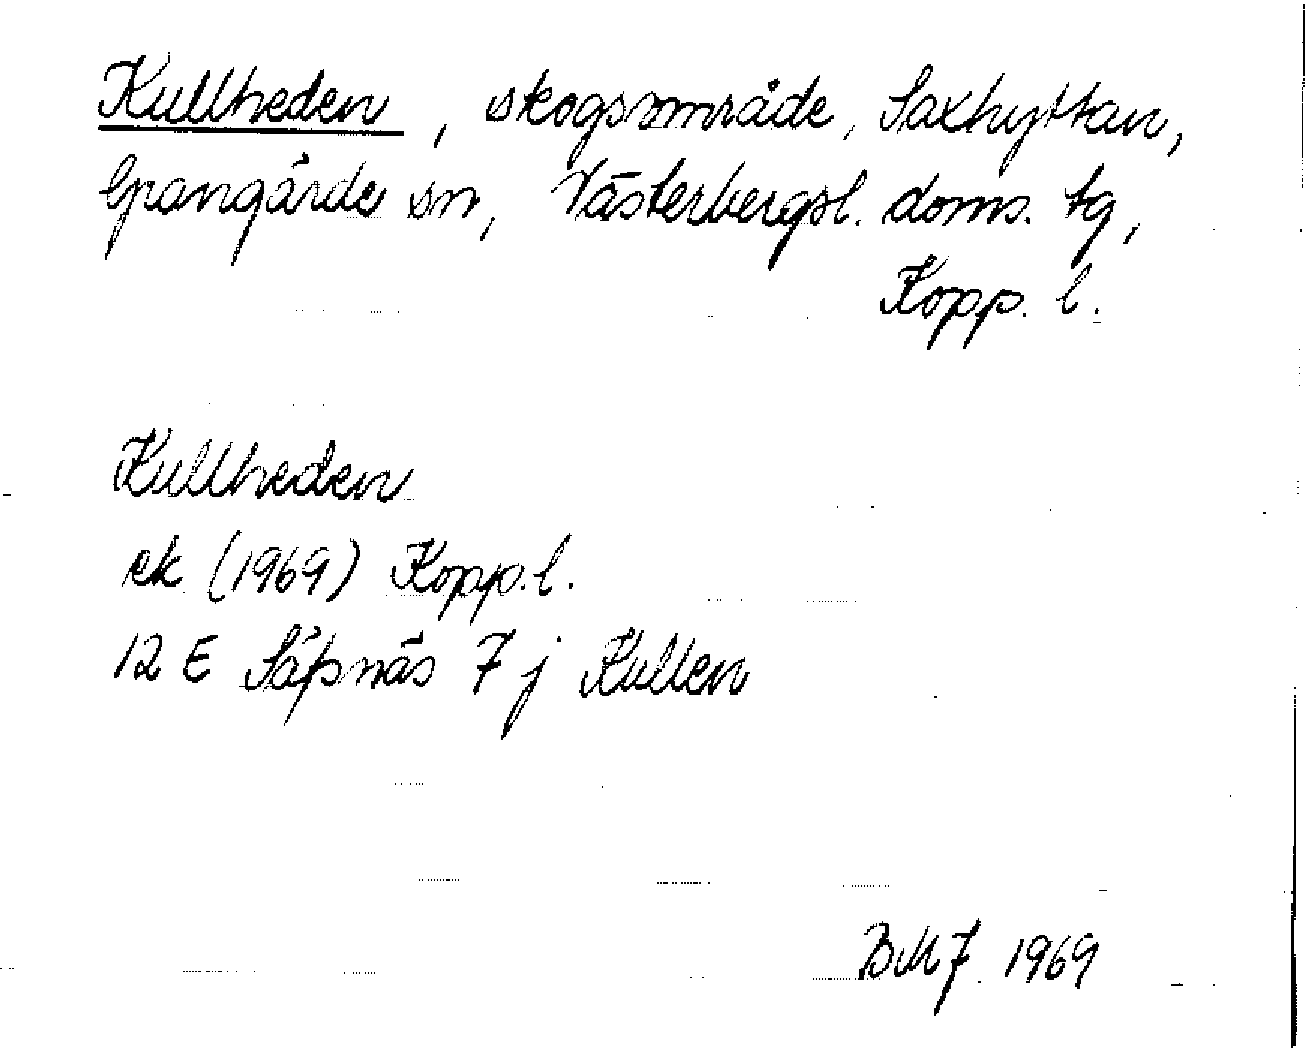 Kullheden, skogsområde, Saxhyttan,
Grangärde sn, Västerbergsl. doms. tg,
Kopp. l.
Kullheden
ek (1969) Kopp. l.
12 E Säfsnäs 7 j Kullen
BMF 1969